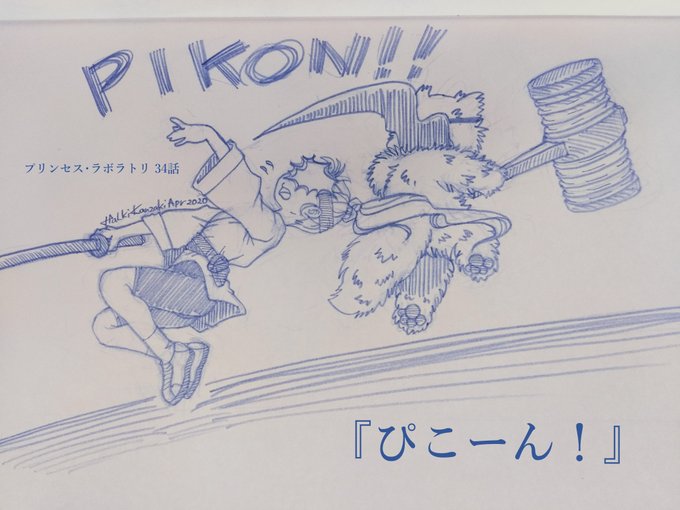 PIKON!!
プリンセス・ラボラトリ 34話
Halki Kanzaki Apr 2020
『ぴこーん！』